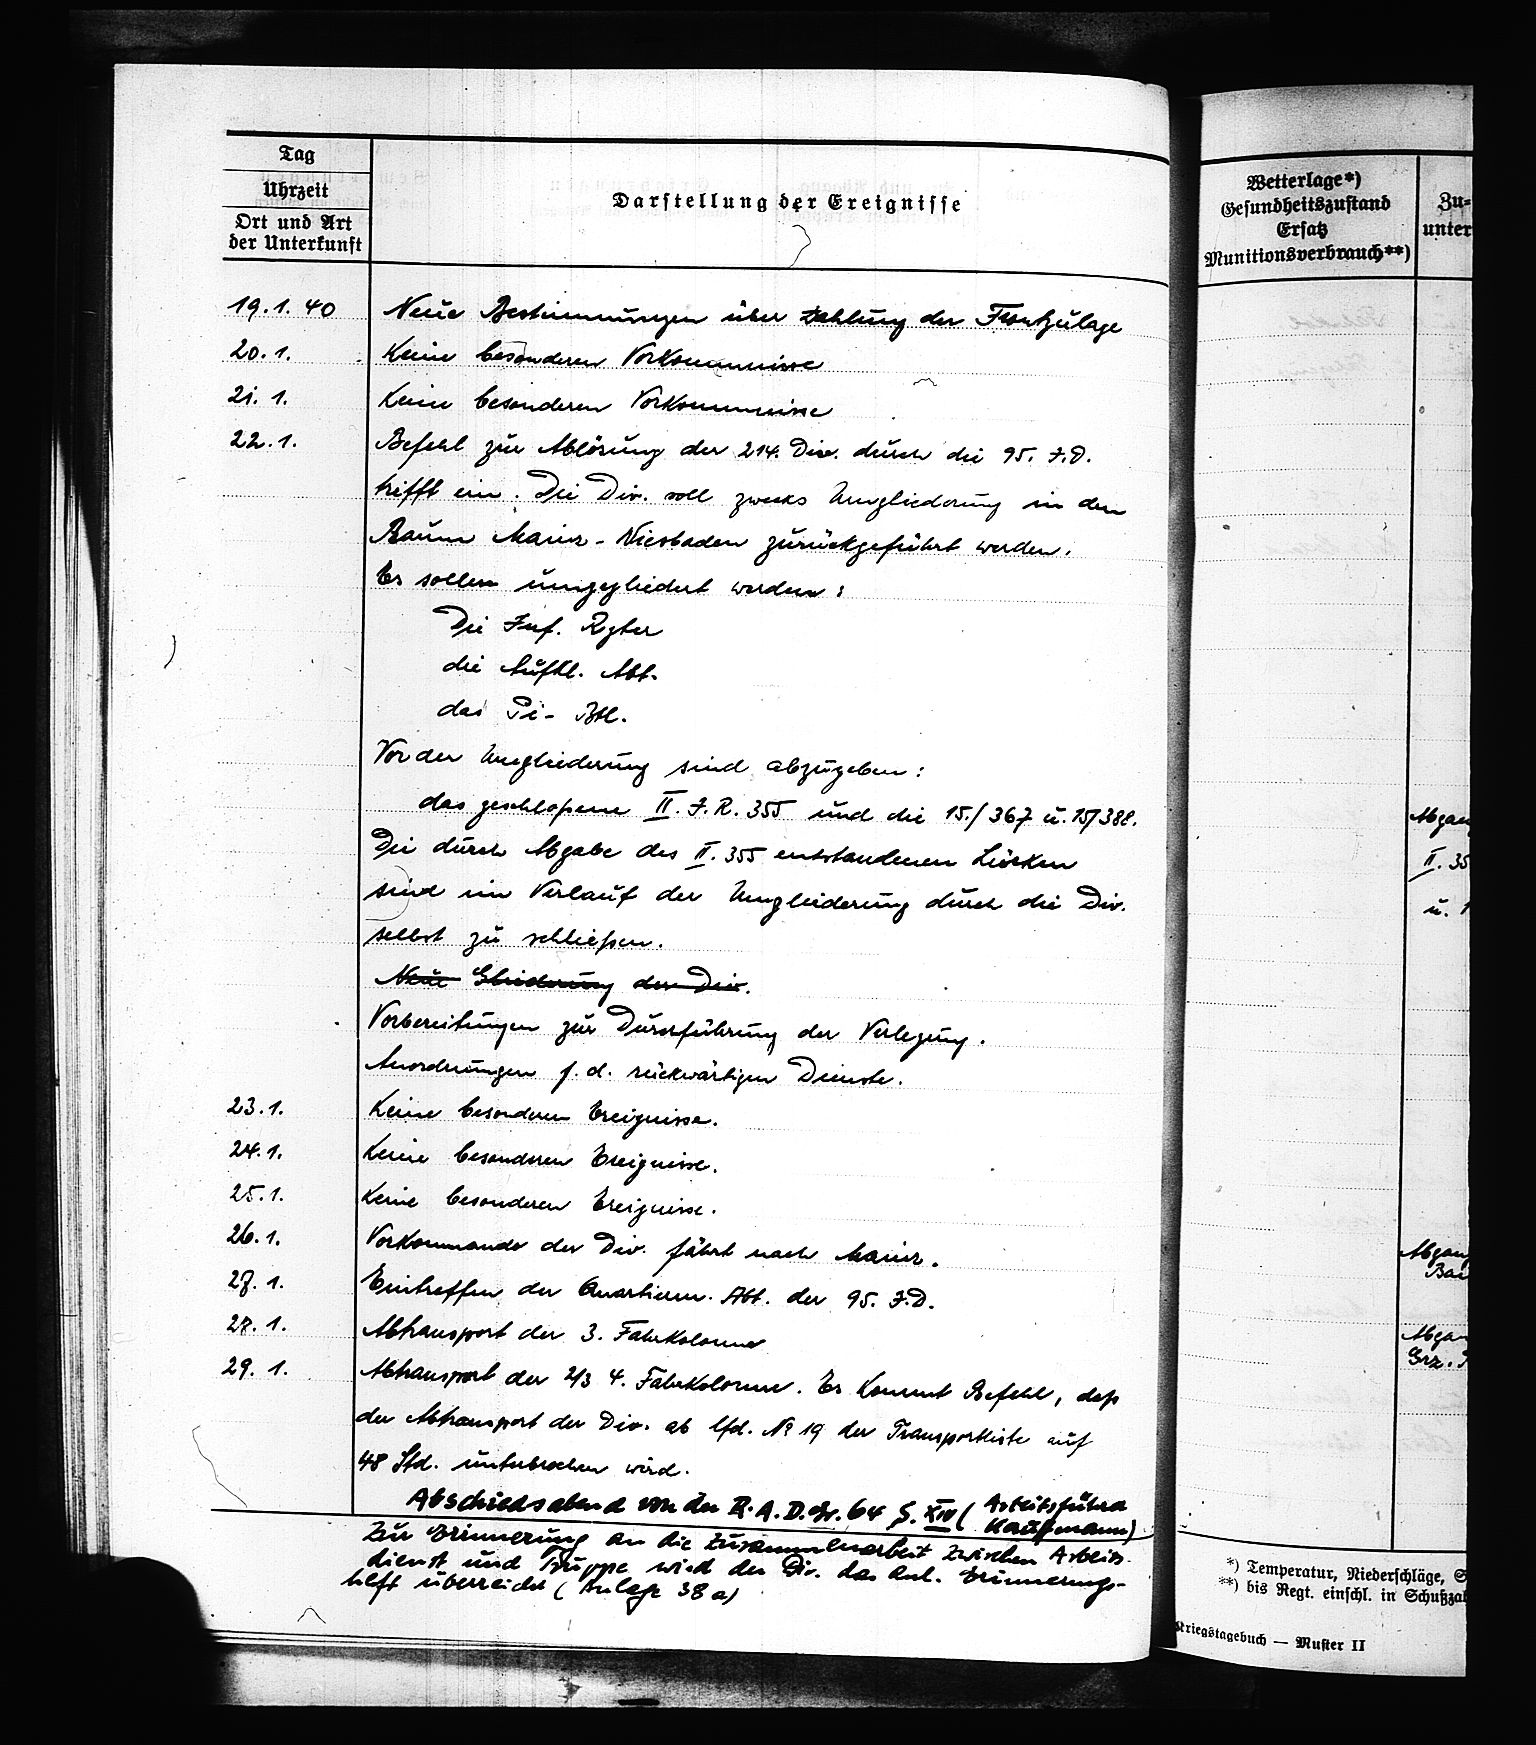 Tag
Uhrzeit
Ort und Art
der Unterkunft
Darstellung der Ereignisse
19.1.40 Neue Bestimmungen über Zahlung der Frontzulage
20.1. Keine besonderen Vorkommnisse
21.1. Keine besonderen Vorkommnisse
22.1. Befehl zur Ablösung der 214. Div. durch die 95. J.D.
trifft ein. Die Div. soll zwecks Umgliederung in den
Raum Mainz - Wiesbaden zurückgeführt werden.
Es sollen umgegliedert werden:
Die Inf. Rgter
die Aufkl. Abt.
das Pi- Btl.
Vor der Umgliederung sind abzugeben:
das geschloßene II. J.R. 355 und die 15./367 u. 15/388.
Die durch Abgabe des II. 355 entstandenen Lücken
sind im Verlauf der Umgliederung durch die Div.
selbst zu schließen.
Neue Gliederung der Div.
Vorbereitungen zur Durchführung der Verlegung.
Anordnungen f. d. rückwärtigen Dienste.
23.1. Keine besonderen Ereignisse.
24.1. Keine besonderen Ereignisse.
25.1. Keine besonderen Ereignisse.
26.1. Vorkommando der Div. fährt nach Mainz.
27.1. Eintreffen der Quartierm. Abt. der 95. J.D.
Abtransport der 3. Fahrkolonne
29.1. Abtransport der 2/3 4. Fahrkolonne. Es kommt Befehl, daß
der Abtransport der Div. ab lfd. No 19 der Transportliste auf
48 Std. unterbrochen wird.
Abschiedsabend von der R.A.D. Gr. 64 XIV (Arbeitsführer
Kaufmann)
Zur Erinnerung an die Zusammenarbeit zwischen Arbeits-
dienst und Truppe wird der Div. das anl. Erinnerungs-
heft überreicht (Anlage 38a)
Wetterlage*)
Gesundheitszustand
Ersatz
Munitionsverbrauch**)
Zu-
unter
Abgan
II. 35
u. 1
Abgan
Abgan
*) Temperatur, Niederschläge, S
**) bis Regt. einschl. in Schußza
Kriegstagebuch — Muster II